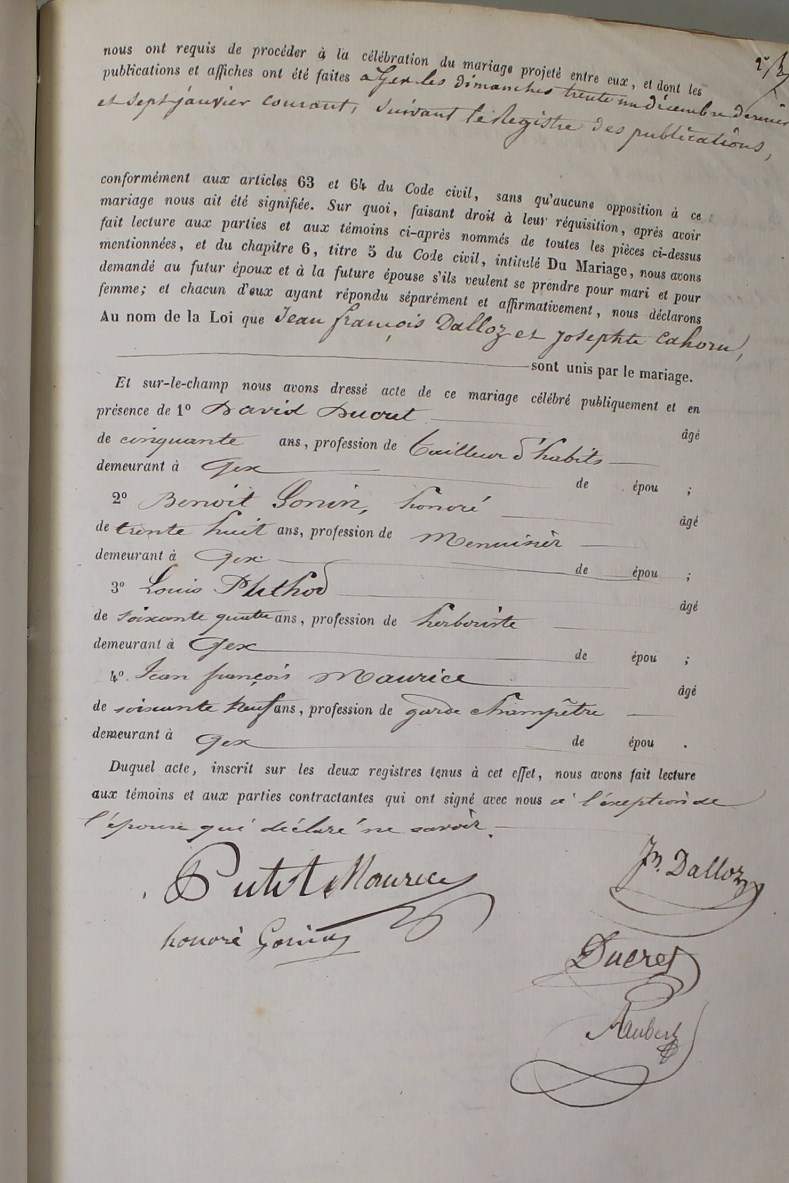 nous ont requis de procéder à la célébration du mariage projeté entre eux, et dont les
publications et affiches ont été faites a Gex les dimanches trente un décembre dernier
et sept janvier courant, suivant le Registre des publications,
conformément aux articles 63 et 64 du Code civil, sans qu'aucune opposition à ce
mariage nous ait été signifiée. Sur quoi, faisant droit à leur réquisition, après avoir
fait lecture aux parties et aux témoins ci-après nommés de toutes les pièces ci-dessus
mentionnées, et du chapitre 6, titre 5 du Code civil, intitulé Du Mariage, nous avons
demandé au futur époux et à la future épouse s'ils veulent se prendre pour mari et pour
femme; et chacun d'eux ayant répondu séparément et affirmativement, nous déclarons
Au nom de la Loi que Jean françois Dalloz et Josephte Cahorn,
sont unis par le mariage.
Et sur-le-champ nous avons dressé acte de ce mariage célébré publiquement et en
présence de 1º David Ducret âgé
de cinquante ans, profession de tailleur d'habits
demeurant à Gex de épou ;
2º Benoit Gonin, honoré âgé
de trente huit ans, profession de Menuisier
demeurant à Gex de épou ;
3º Louis âgé
de soixante quatre ans, profession de herboriste
demeurant à Gex de épou ;
4º. Jean françois Maurice âgé
de soixante neuf ans, profession de garde champêtre
demeurant à Gex de épou .
Duquel acte, inscrit sur les deux registres tenus à cet effet, nous avons fait lecture
aux témoins et aux parties contractantes qui ont signé avec nous a l'éxeption de
l'épouse qui déclaré ne savoir.
Maurice
Jn. Dalloz
honoré Gonin
Ducret